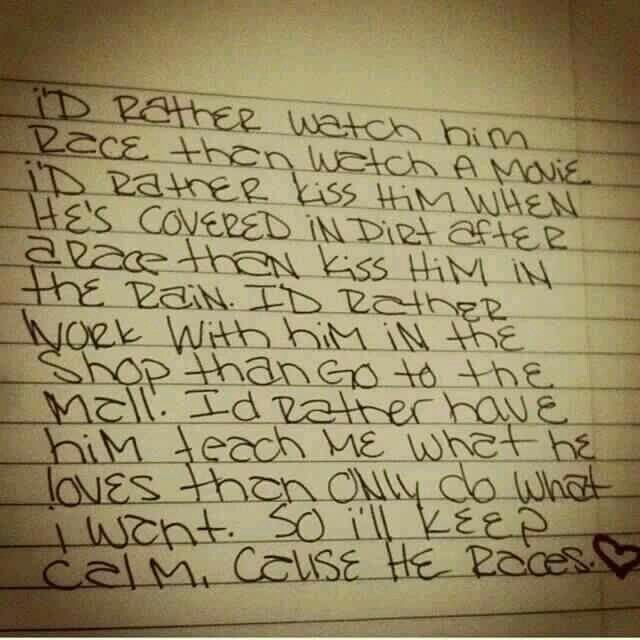 i'D RatHER watch him
RacE than Watch A MoviE
i'D RatHER kiss HiM WHEN
HE'S COVERED iN DiRt aftER
a Race thaN kiss HiM iN
the RaiN. I'D RatheR
WORk With hiM iN the
Shop than Go to thE
Mall. I'd Rather have
hiM teach ME what hE
lovEs than ONly do What
i want. So i'll KEEP
calM, CausE HE Races. ♥